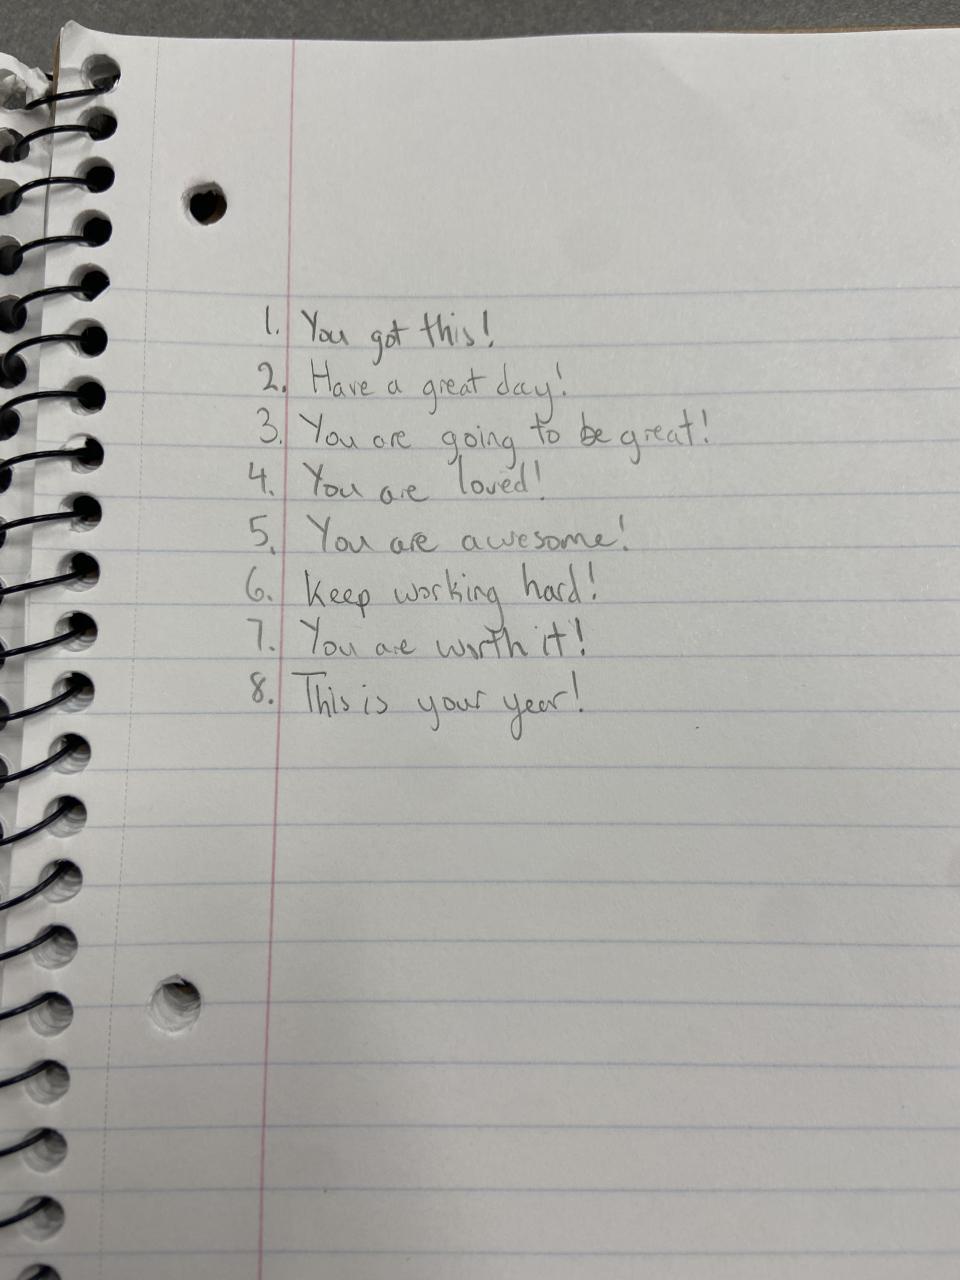 1. You got this!
2. Have a great day!
3. You are going to be great!
4. You are loved!
5. You are awesome!
6. Keep working hard!
7. You are worth it!
8. This is your year!